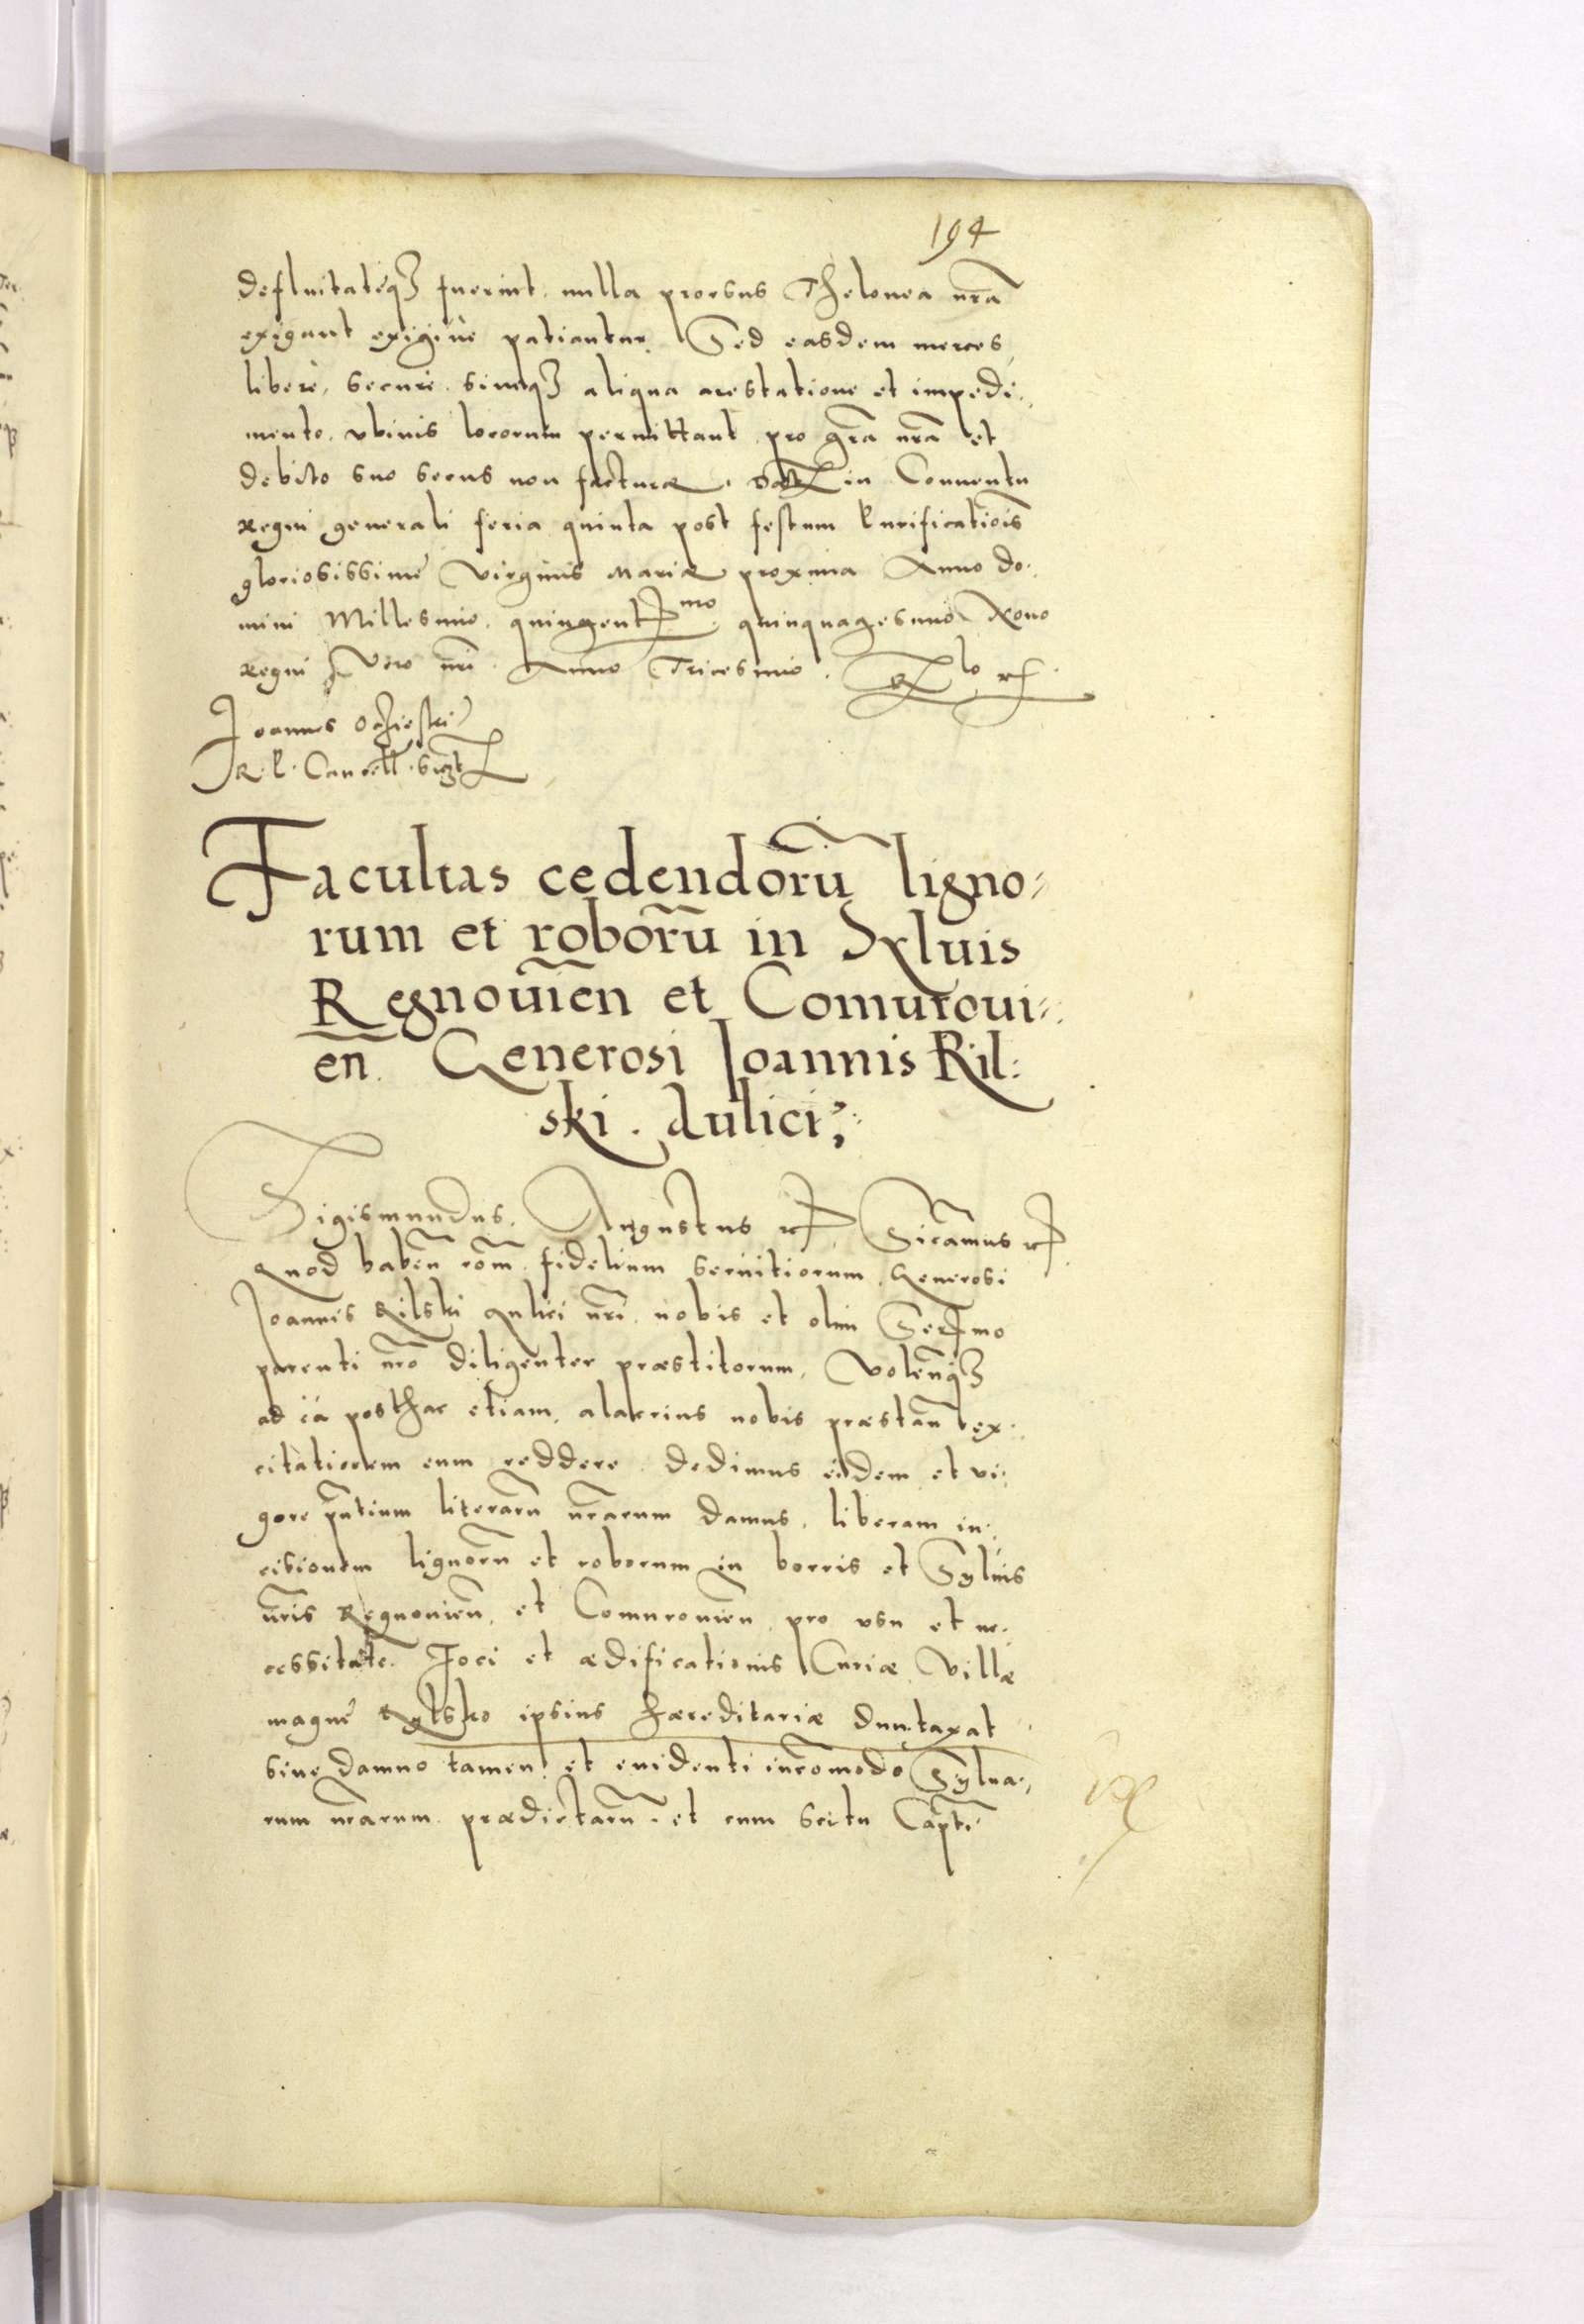 194
defluitateqꝫ fuerint. nulla prorsus Thelonea nr̃a
exigant exigiue patiantur. Sed easdem merces
libere, secure. sineqꝫ aliqua arestatione et impedi:
mento. vbiuis locorum permittant pro gr̃a nr̃a et
debito suo secus non facturæ. Dat in Conuentu
Regni generali feria quinta post festum Purificatiois
gloriosissimę Virginis Mariæ proxima Anno do:
mini Millesimo. quingentmo quinquagesimo Nono
Regni Vero nr̃i. Anno Tricesimo.
Joannes Oczieski
R. P. Cancell. sszt
Facultas cedendorũ ligno:
rum et roborũ in Syluis
Regnouien̄ et Comuroui:
en̄. Generosi Joannis Ril:
ski. Aulici:
Sigismundus. Augustus rꝭ Sicamus rꝭ
Quod haben̄ rom̄. fidelium seruitiorum. Generosi
Joannis Rilski Aulici nr̃i. nobis et olim Sermo
parenti nr̃o diligenter præstitorum, Volen̄qꝫ
ad ea posthac etiam. alacrius nobis præstan̄ ex:
citatiorem eum reddere. dedimus eidem et vi:
gore pn̄tium literarũ nr̃arum damus. liberam in:
cisionem lignorũ et roborum in borris et Syluis
nr̃is Regnouien̄. et Comurouien̄ pro vsu et ne:
cessitate. Foci et ædificationis Curiæ Villæ
magnę Rylsko ipsius hæreditariæ duntaxat
sine damno tamen et euidenti incomodo Sylua:
rum nr̃arum prædictarũ. et cum scitu Capt: